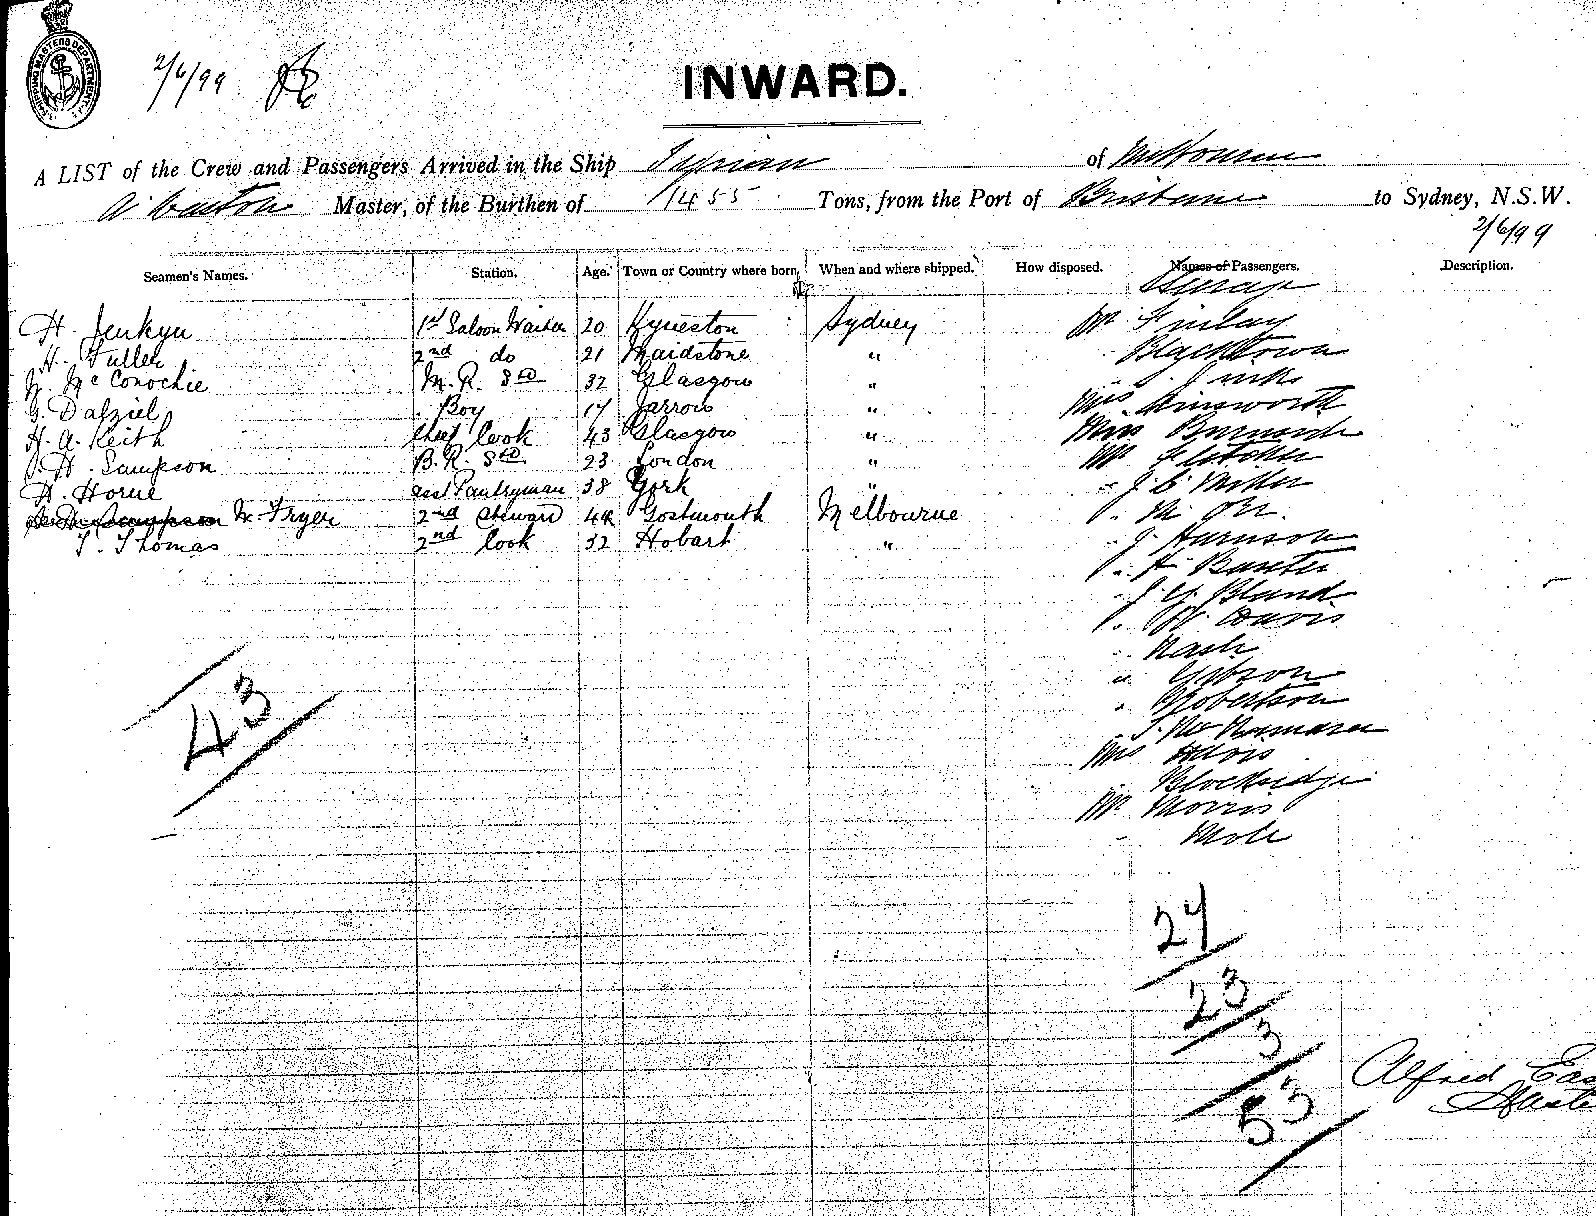 2/6/99
INWARD.
A LIST of the Crew and Passengers Arrived in the Ship Tyrian of Melbourne
Master, of the Burthen of 1455 Tons, from the Port of Brisbane to Sydney, N.S.W.
2/6/99
Seamen's Names. Station. Age. Town or Country where born. When and where shipped. How disposed. Names of Passengers. Description.
Steerage
H. Jenkyn 1st Saloon Waiter 20 Kyneston Sydney Mr Finlay
H. Fuller 2nd do 21 Maidstone " Blacktown
McConochie M. R. Std 32 Glasgow "
G. Dalziel Boy 17 Jarrow " Mrs Ainsworth
H. A. Keith Chief Cook 43 Glasgow " Miss
H. Sampson B. R. Std 23 London " Mr Fletcher
H. Horne asst Pantryman 38 York " J. C. Miller
W. Fryer 2nd Steward Melbourne
T. Thomas 2nd Cook 32 Hobart " J. Harrison
" H. Baxter
Bland
" W. Davis
" Nash
" Gibson
" Robertson
Mrs
Blockridge
Mr Morris
" Mole
43
24
23
3
53
Alfred